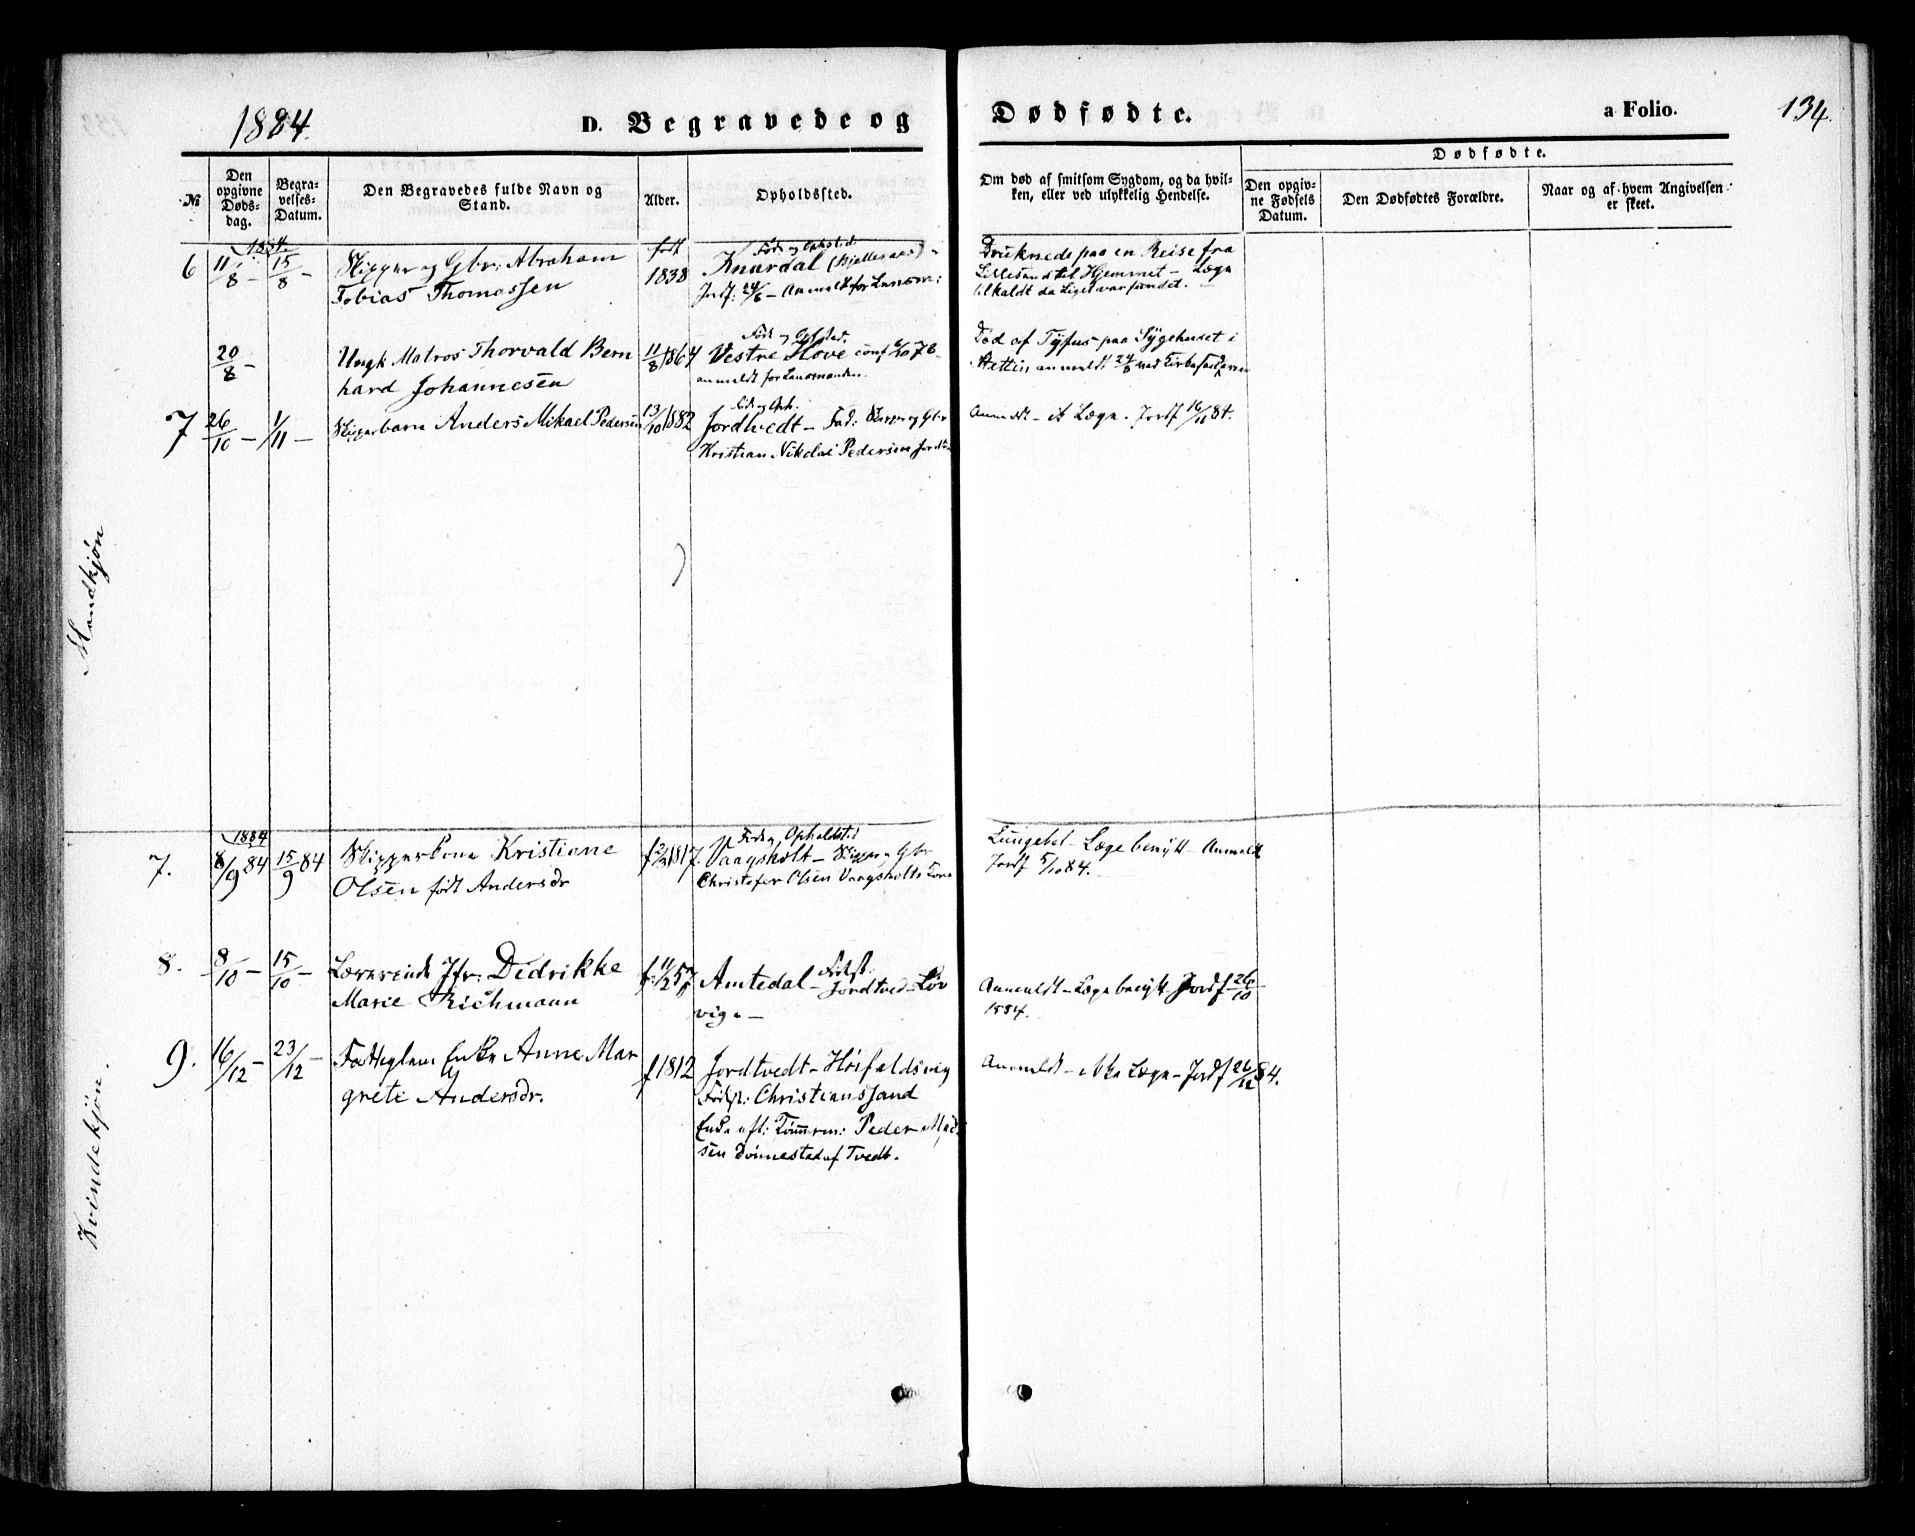 1884. D. Begravede og Dødfødte. a Folio. 134.
No
Den opgivne Dødsdag.
Begravelses-Datum.
Den Begravedes fulde Navn og Stand.
Alder.
Opholdssted.
Om død af smitsom Sygdom, og da hvilken, eller ved ulykkelig Hendelse.
Dødfødte.
Den opgivne Fødsels Datum.
Den Dødfødtes Forældre.
Naar og af hvem Angivelsen er skeet.
Mandkjøn
1884.
6 11/8 – 15/8 – Skipper og Gbr: Abraham
Tobias Thomassen
født
1838
Føde og Opholdstd
Knardal
Jrdf: 24/8 – Anmeldt for Lensm:
Druknede paa en Reise fra
Lillesand til Hjemmet – Læge
tilkaldt da Liget var fundet.
20/8 – Ungk Matros Thorvald Bern
hard Johannesen
11/8 1864
Føde og Opholdsted.
Vestre Hove conf 6/10 78 –
anmeldt for Lensmanden.
Død af Tyfus paa Sygehuset i
Stettin anmeldt 24/8 ved
7 26/10 – 1/11 – Skipperbarn Anders Mikael Pedersen
13/10 1882
Føde og Oph.
Jordtvedt – Fad: Skipper og Gbr
Kristian Nikolai Pedersen
Anmeldt – ei Læge. Jordf 16/11 84.
Kvindekjøn.
1884
7. 8/9 84 15/9 84 Skipperkone Kristiane
Olsen født Andersdr
f 2/3 1817.
Føde og Opholdstd
Vaagsholt – Skipper og Gbr
Christofer Olsen Vaagsholts Kone
Lungebet – Læge benytt – Anmeldt
Jordf 5/10 84.
8. 8/10 – 15/10 – Lærerinde Jfr: Dedrikke
Marie Richmann
f. 11/2 57
Amtedal – Fødest:
Jordtved – Løv
vig. –
Anmeldt – Læge benytt. Jordf 26/10
1884.
9. 16/12 – 23/12 – Fattiglem Enke Anne Mar
grete Andersdr.
f 1812
Jordtvedt – Høifaldsvig
Fødest: Christianssand
Enke eft: Tømmerm: Peder
sen Dønnestad af Tvedt.
Anmeldt – ikke Læge – Jordf 26/12 84.